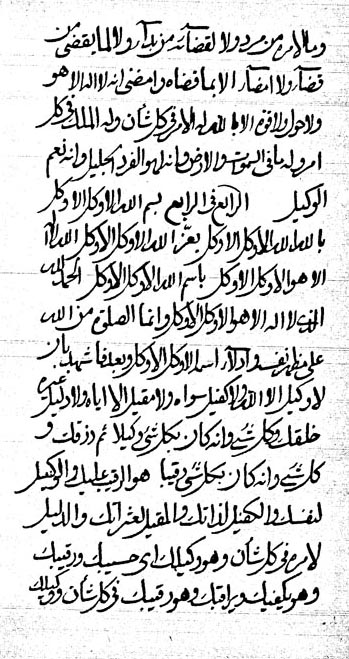 وما لامره من مرد ولا لقضائه من بداء ولا لما يقضى من
قضاء ولا امضاء الا بما قضاه وامضى انه لا اله الا هو
ولا حول ولا قوة الا بالله له الامر فى كل شأن وله الملك فى كل
امر وله ما فى السموات والارض وانه لهو الفرد الجليل وانه نعم
الوكيل الرابع فى الرابع بسم الله الاوكل الاوكل
بالله الله الاوكل الاوكل الله لا
الا هو الاوكل الاوكل باسم الله الاوكل الاوكل الحمد لله
الذى لا اله الا هو الاوكل الاوكل وانما الصلوة من الله
على مظهر نفسه اسم الاوكل الاوكل وبعد فاشهد بان
لا وكيل الا الله ولا كفيل سواه ولا مقيل الا اياه ولا دليل غيره
خلقك وكل شىء وانه كان بكل شىء وكيلا ثم رزقك و
كل شىء وانه كان بكل شىء رقيبا هو الرقيب عليك والوكيل
لنفسك والكفيل لذاتك والمقيل لعثراتك والدليل
لامره فى كل شأن وهو وكيلك اى حسيبك ورقيبك
وهو يكفيك ويراقبك وهو رقيبك فى كل شأن ووكيلك